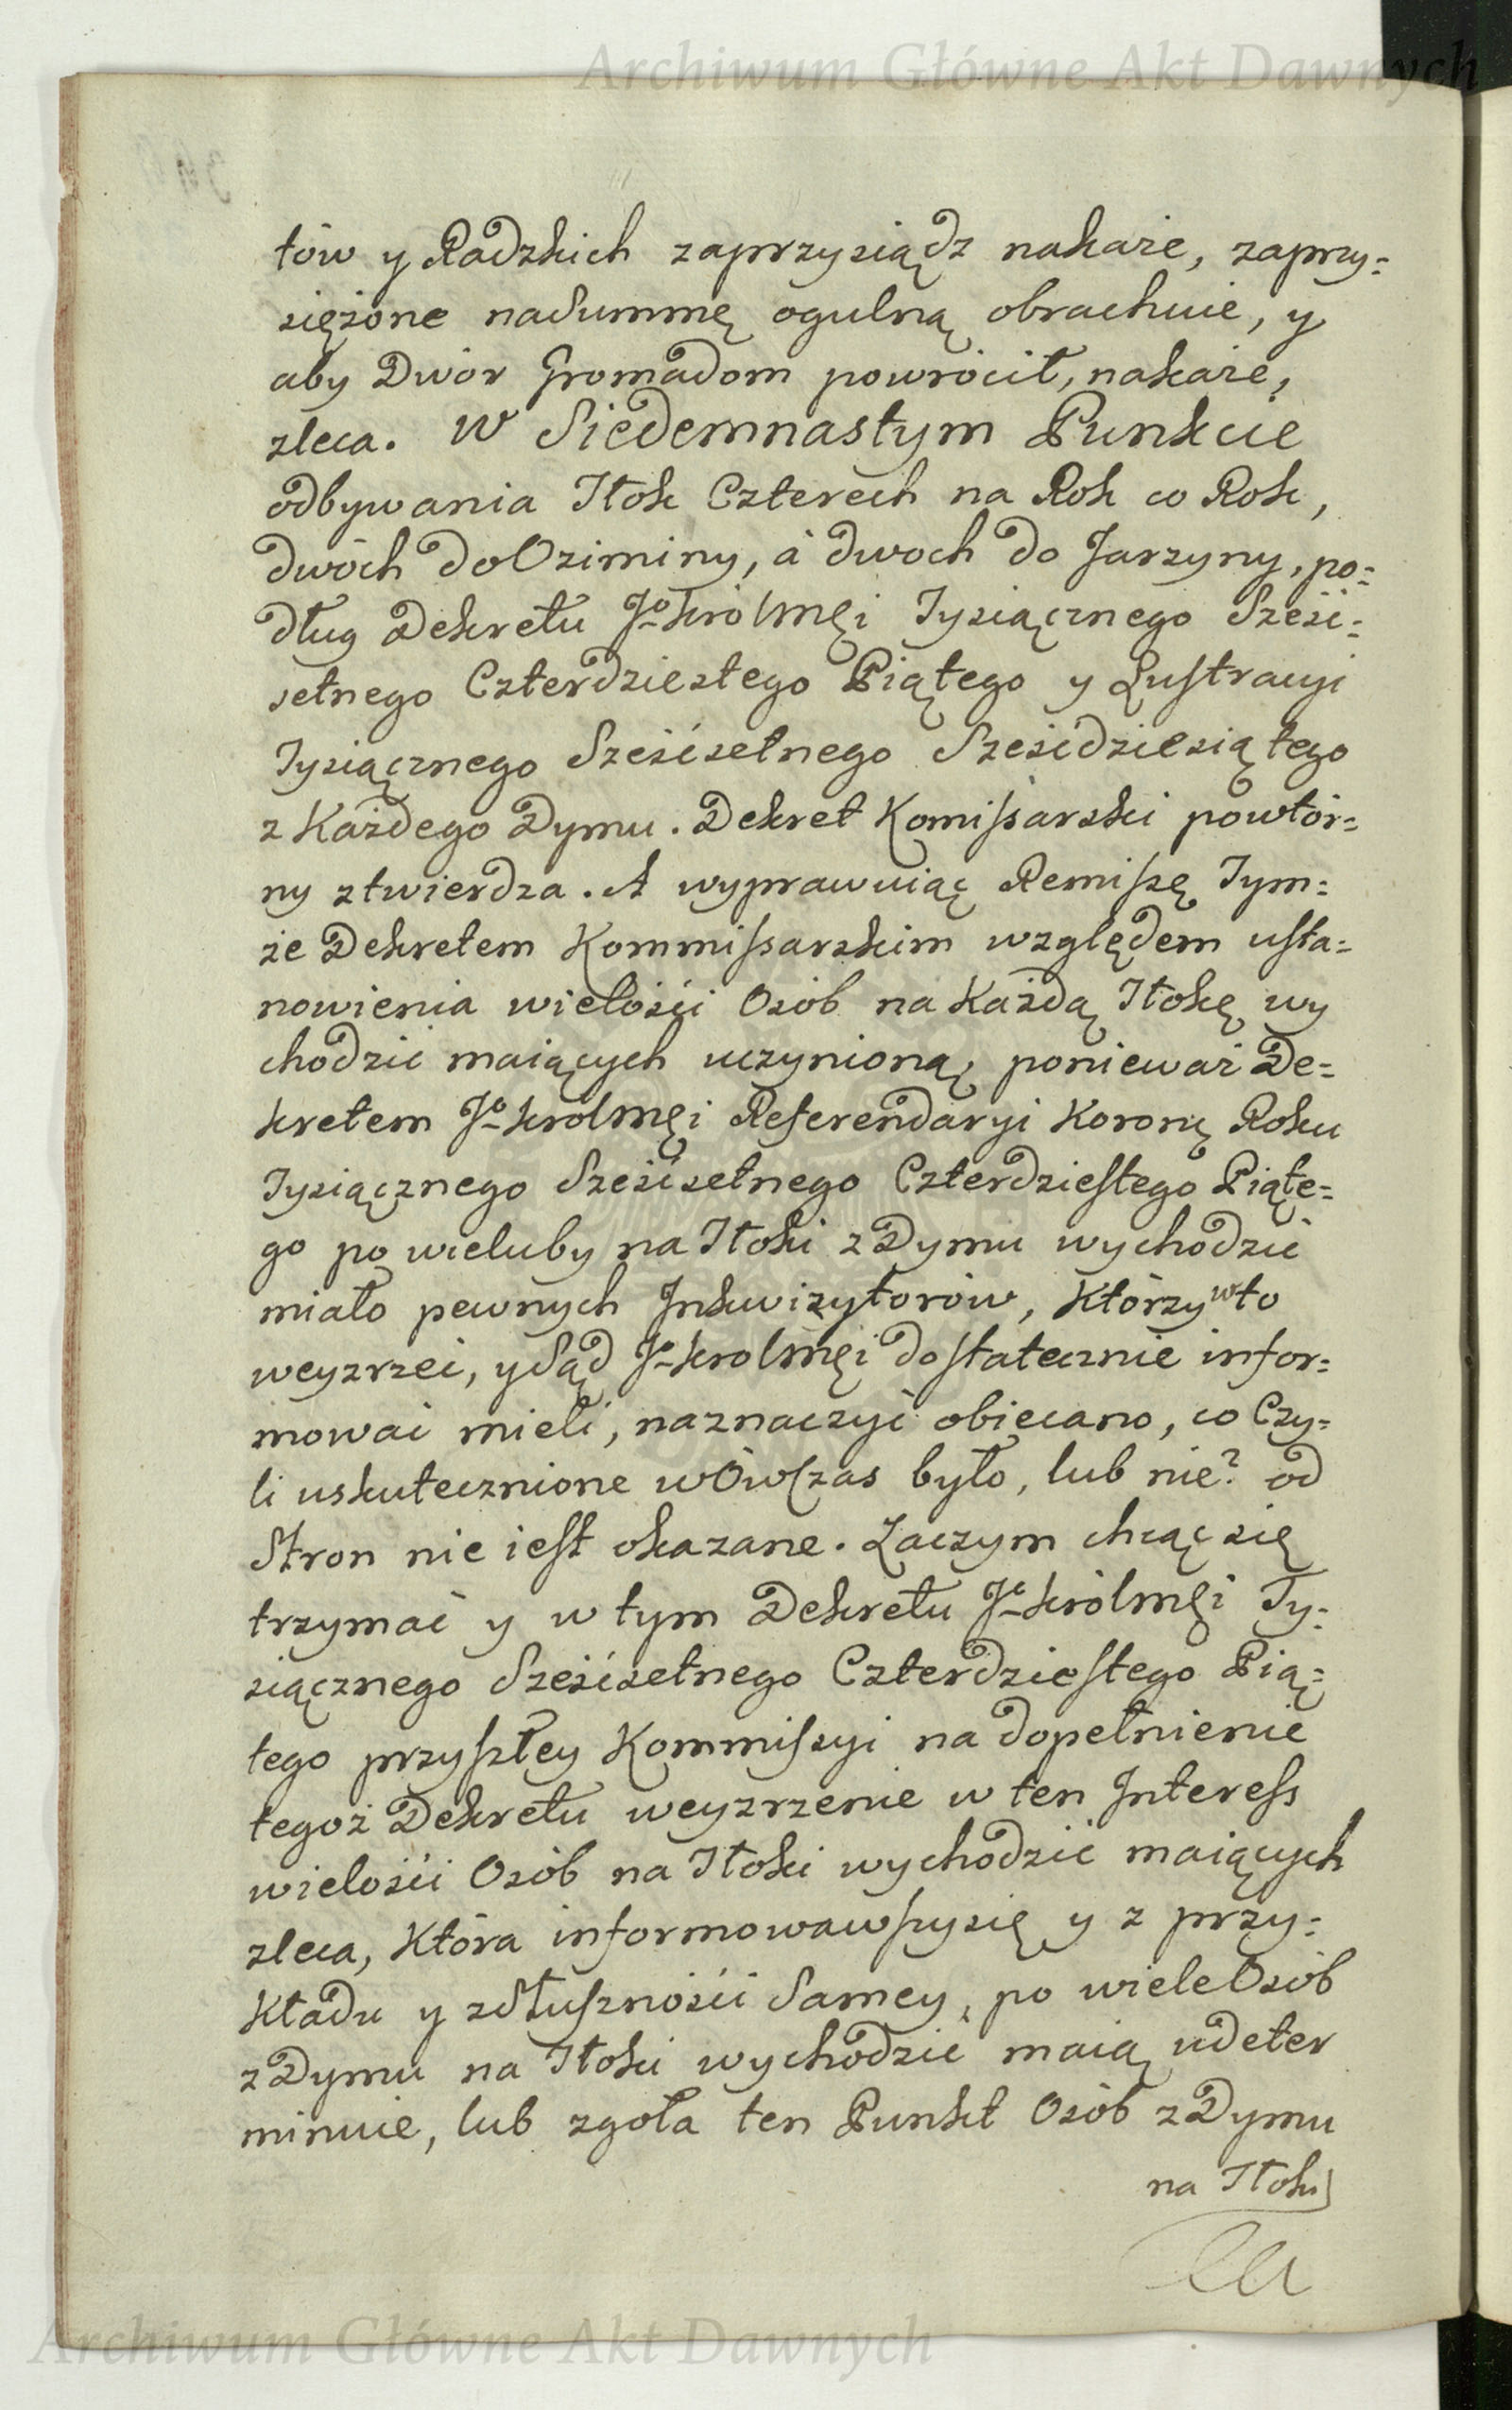 Archiwum Główne Akt Dawnych
tów y Radzkich zaprzysiądz nakaże, zaprzy=
siężone nadummę ogulną obrachuie, y
aby Dwór Gromadom powrócił, nakaże,
zleca. W Siedemnastym Punkcie
odbywania Tłok Czterech na Rok co Rok,
dwóch do Oziminy, à dwoch do Jarzyny, po=
dług Dekretu Jº Krolmci Tysiącznego Sześć=
setnego Czterdziestego Piątego y Lustracyi
Tysiącznego Sześćsetnego Sześćdziesiątego
z Każdego Dymu. Dekret Komissarski powtór=
ny ztwierdza. A wyprawuiąc Remissę Tym=
że Dekretem Kommissarskim względem usta=
nowienia wielości Osób na Każdą Tłokę wy
chodzić maiących uczynioną, ponieważ De=
kretem Jº Królmci Referendaryi Koronę Roku
Tysiącznego Sześćsetnego Czterdziestego Piąte=
go po wieluby na Tłoki z Dymu wychodzić
miało pewnych Inkwizytorów, Którzy w to
weyzrzeć, y Sąd Jº Krolmci dostatecznie infor=
mować mieli, naznaczyć obiecano, co Czy=
li uskutecznione wówczas było, lub nie? od
Stron nie iest okazane. Zaczym chcąc się
trzymać y w tym Dekretu Jº Królmci Ty=
siącznego Sześćsetnego Czterdziestego Pią=
tego przyszłey Kommissyi na dopełnienie
tegoż Dekretu weyzrzenie w ten Interess
wielości Osób na Tłoki wychodzić maiących
zleca, Która informowawszy się y z przy=
Kładu y zSłuszności Samey, po wiele Osób
z Dymu na Tłoki wychodzić maią udeter
minuie, lub zgoła ten Punkt Osób z Dymu
na Tłoki
Archiwum Główne Akt Dawnych